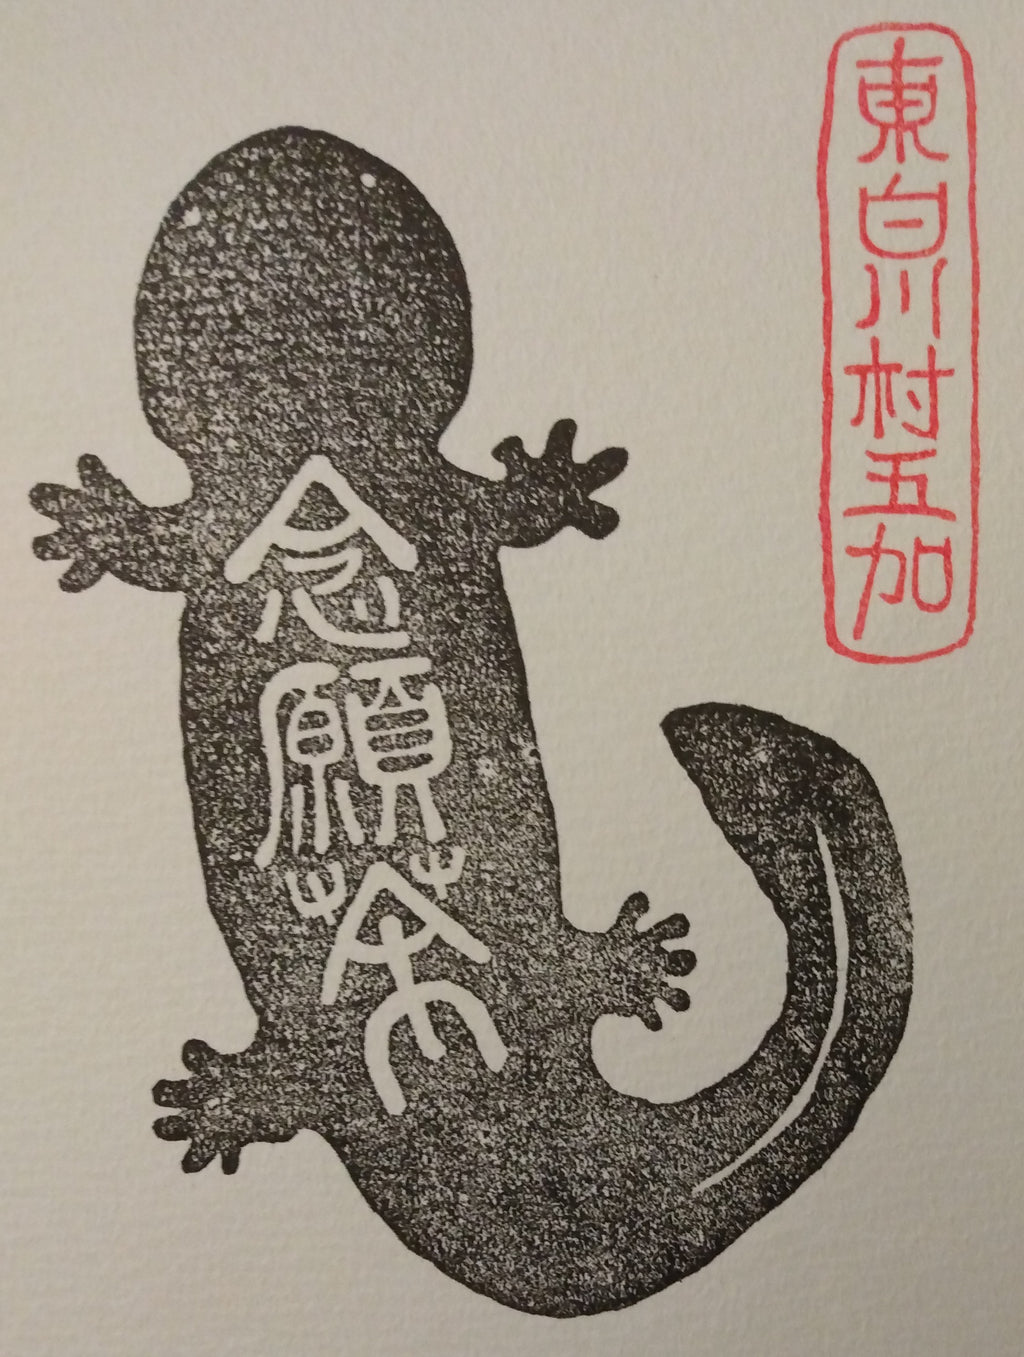 東白川村五加
念願茶